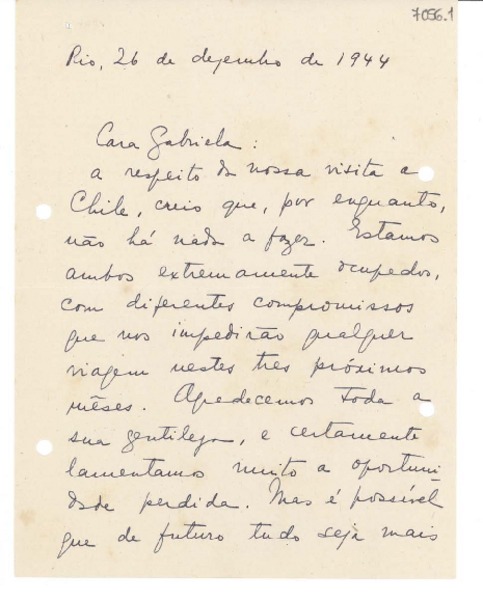 7056.1
Rio, 26 de dezembro de 1944
Cara Gabriela:
a respeito da nossa visita a
Chile, creio que, por enquanto,
não há nada a fazer. Estamos
ambos extremamente ocupados,
com diferentes compromissos
que nos impedirão qualquer
viagem nestes três próximos
mêses. Agradecemos toda a
sua gentileza, e certamente
lamentamos muito a oportuni-
dade perdida. Mas é possível
que de futuro tudo seja mais